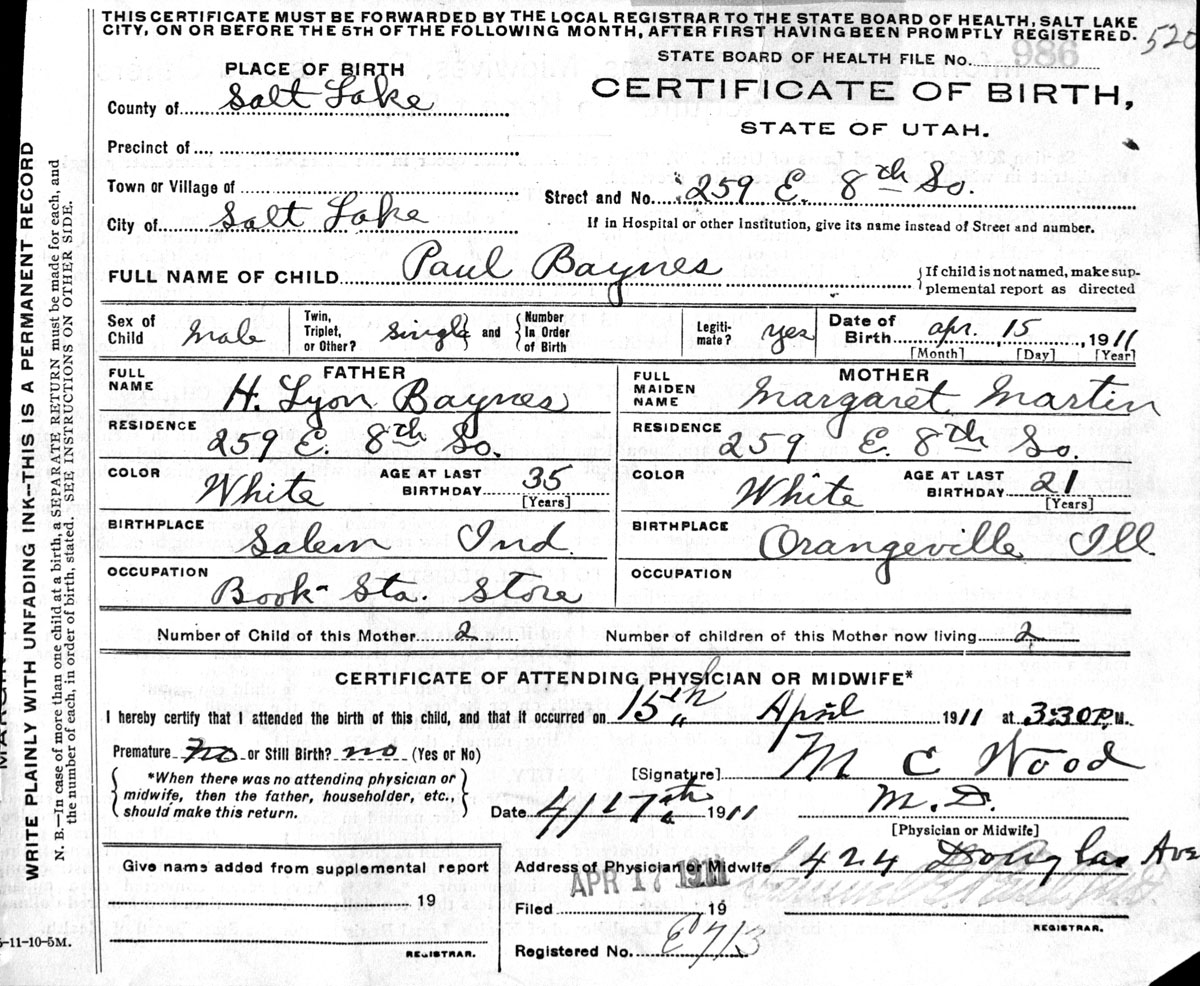 THIS CERTIFICATE MUST BE FORWARDED BY THE LOCAL REGISTRAR TO THE STATE BOARD OF HEALTH, SALT LAKE
CITY, ON OR BEFORE THE 5TH OF THE FOLLOWING MONTH, AFTER FIRST HAVING BEEN PROMPTLY REGISTERED.
520
STATE BOARD OF HEALTH FILE No. 986
PLACE OF BIRTH
CERTIFICATE OF BIRTH,
County of Salt Lake
STATE OF UTAH.
Precinct of
Town or Village of
Street and No. 259 E. 8th So.
City of Salt Lake
If in Hospital or other Institution, give its name instead of Street and number.
FULL NAME OF CHILD Paul Baynes
If child is not named, make sup-
plemental report as directed
Sex of Child Male
Twin, Triplet, or Other? single and Number In Order of Birth
Legiti-mate? yes
Date of Birth Apr. 15, 1911
[Month] [Day] [Year]
FATHER
FULL NAME H. Lyon Baynes
RESIDENCE 259 E. 8th So.
COLOR White AGE AT LAST BIRTHDAY 35 [Years]
BIRTHPLACE Salem Ind.
OCCUPATION Book-Sta. Store
MOTHER
FULL MAIDEN NAME Margaret Martin
RESIDENCE 259 E. 8th So.
COLOR White AGE AT LAST BIRTHDAY 21 [Years]
BIRTHPLACE Orangeville Ill
OCCUPATION
Number of Child of this Mother 2 Number of children of this Mother now living 2
CERTIFICATE OF ATTENDING PHYSICIAN OR MIDWIFE*
I hereby certify that I attended the birth of this child, and that it occurred on 15th April 1911 at 3:30 P. M.
Premature No or Still Birth? no (Yes or No)
*When there was no attending physician or
midwife, then the father, householder, etc.,
should make this return.
[Signature] M C Wood
Date 4/17th 1911 M.D.
[Physician or Midwife]
Give name added from supplemental report
19
REGISTRAR.
Address of Physician or Midwife 424 Douglas Ave
APR 17 1911
Filed 19
REGISTRAR.
Registered No. E713
-11-10-5M.
WRITE PLAINLY WITH UNFADING INK--THIS IS A PERMANENT RECORD
N. B.—In case of more than one child at a birth, a SEPARATE RETURN must be made for each, and
the number of each, in order of birth, stated. SEE INSTRUCTIONS ON OTHER SIDE.